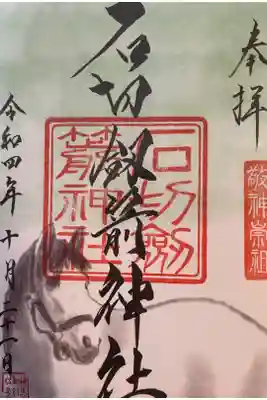 奉拝
敬神崇祖
石切劔箭神社
石切劔
箭神社
令和四年十月二十一日